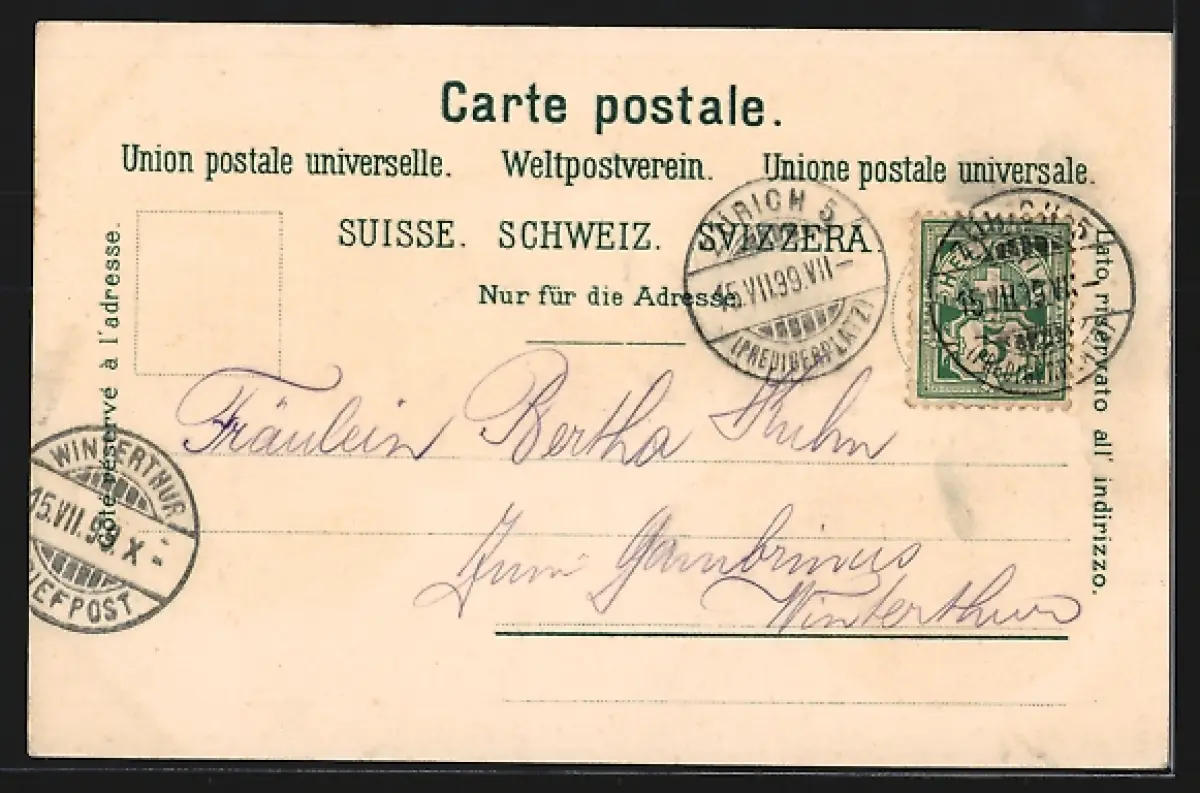 Carte postale.
Union postale universelle. Weltpostverein. Unione postale universale.
SUISSE. SCHWEIZ. SVIZZERA.
Nur für die Adresse.
Côté réservé à l'adresse.
Lato riservato all' indirizzo.
ZÜRICH 5
15.VII.99.VII-
(PREDIGERPLATZ)
5
Fräulein Bertha Kuhn
Zum Gambrinus
Winterthur
WINTERTHUR
15.VII.99.X-
IEFPOST